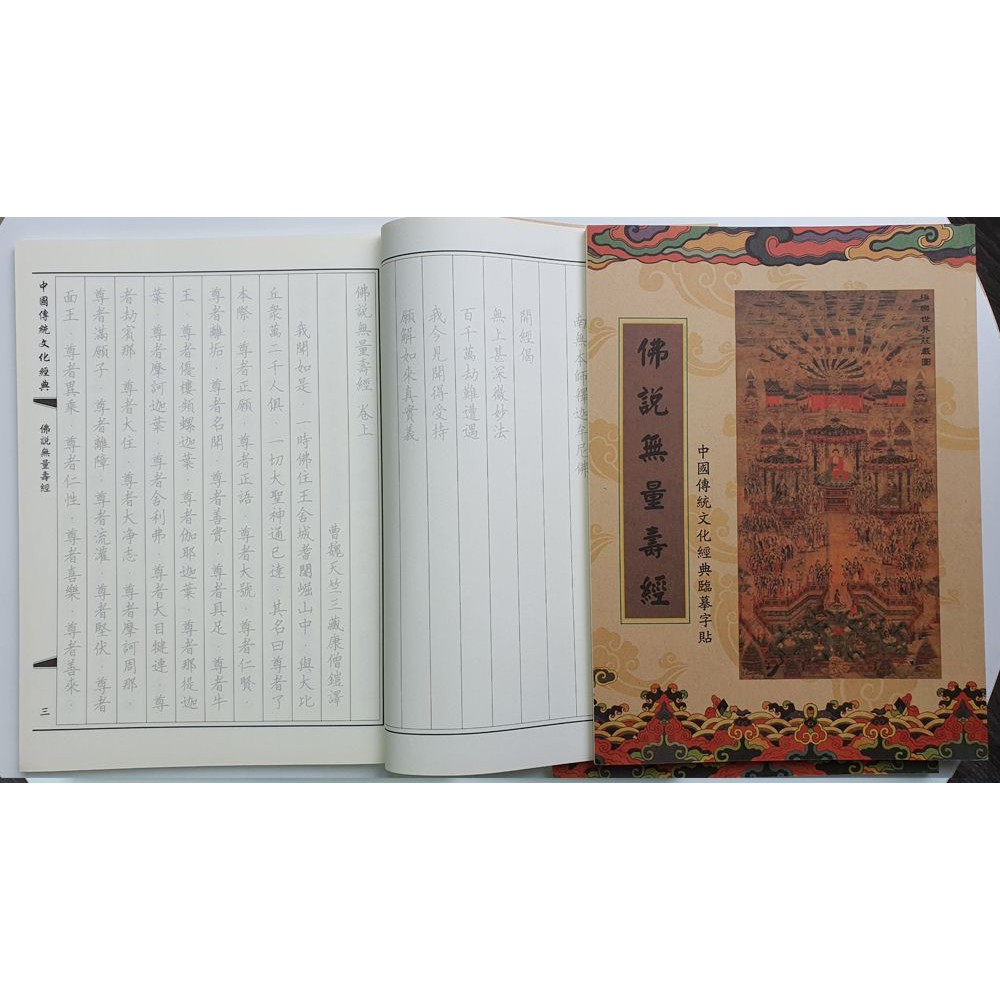 極樂世界莊嚴圖
中國傳統文化經典臨摹字貼
佛說無量壽經
南無本師釋迦牟尼佛
開經偈
無上甚深微妙法
百千萬劫難遭遇
我今見聞得受持
願解如來真實義
佛說無量壽經 卷上
曹魏天竺三藏康僧鎧譯
我聞如是．一時佛住王舍城耆闍崛山中．與大比
丘眾萬二千人俱．一切大聖神通已達．其名曰尊者了
本際．尊者正願．尊者正語．尊者大號．尊者仁賢．
尊者離垢．尊者名聞．尊者善實．尊者具足．尊者牛
王．尊者優樓頻螺迦葉．尊者伽耶迦葉．尊者那提迦
葉．尊者摩訶迦葉．尊者舍利弗．尊者大目犍連．尊
者劫賓那．尊者大住．尊者大淨志．尊者摩訶周那．
尊者滿願子．尊者離障．尊者流灌．尊者堅伏．尊者
面王．尊者異乘．尊者仁性．尊者喜樂．尊者善來．
中國傳統文化經典
佛說無量壽經
三